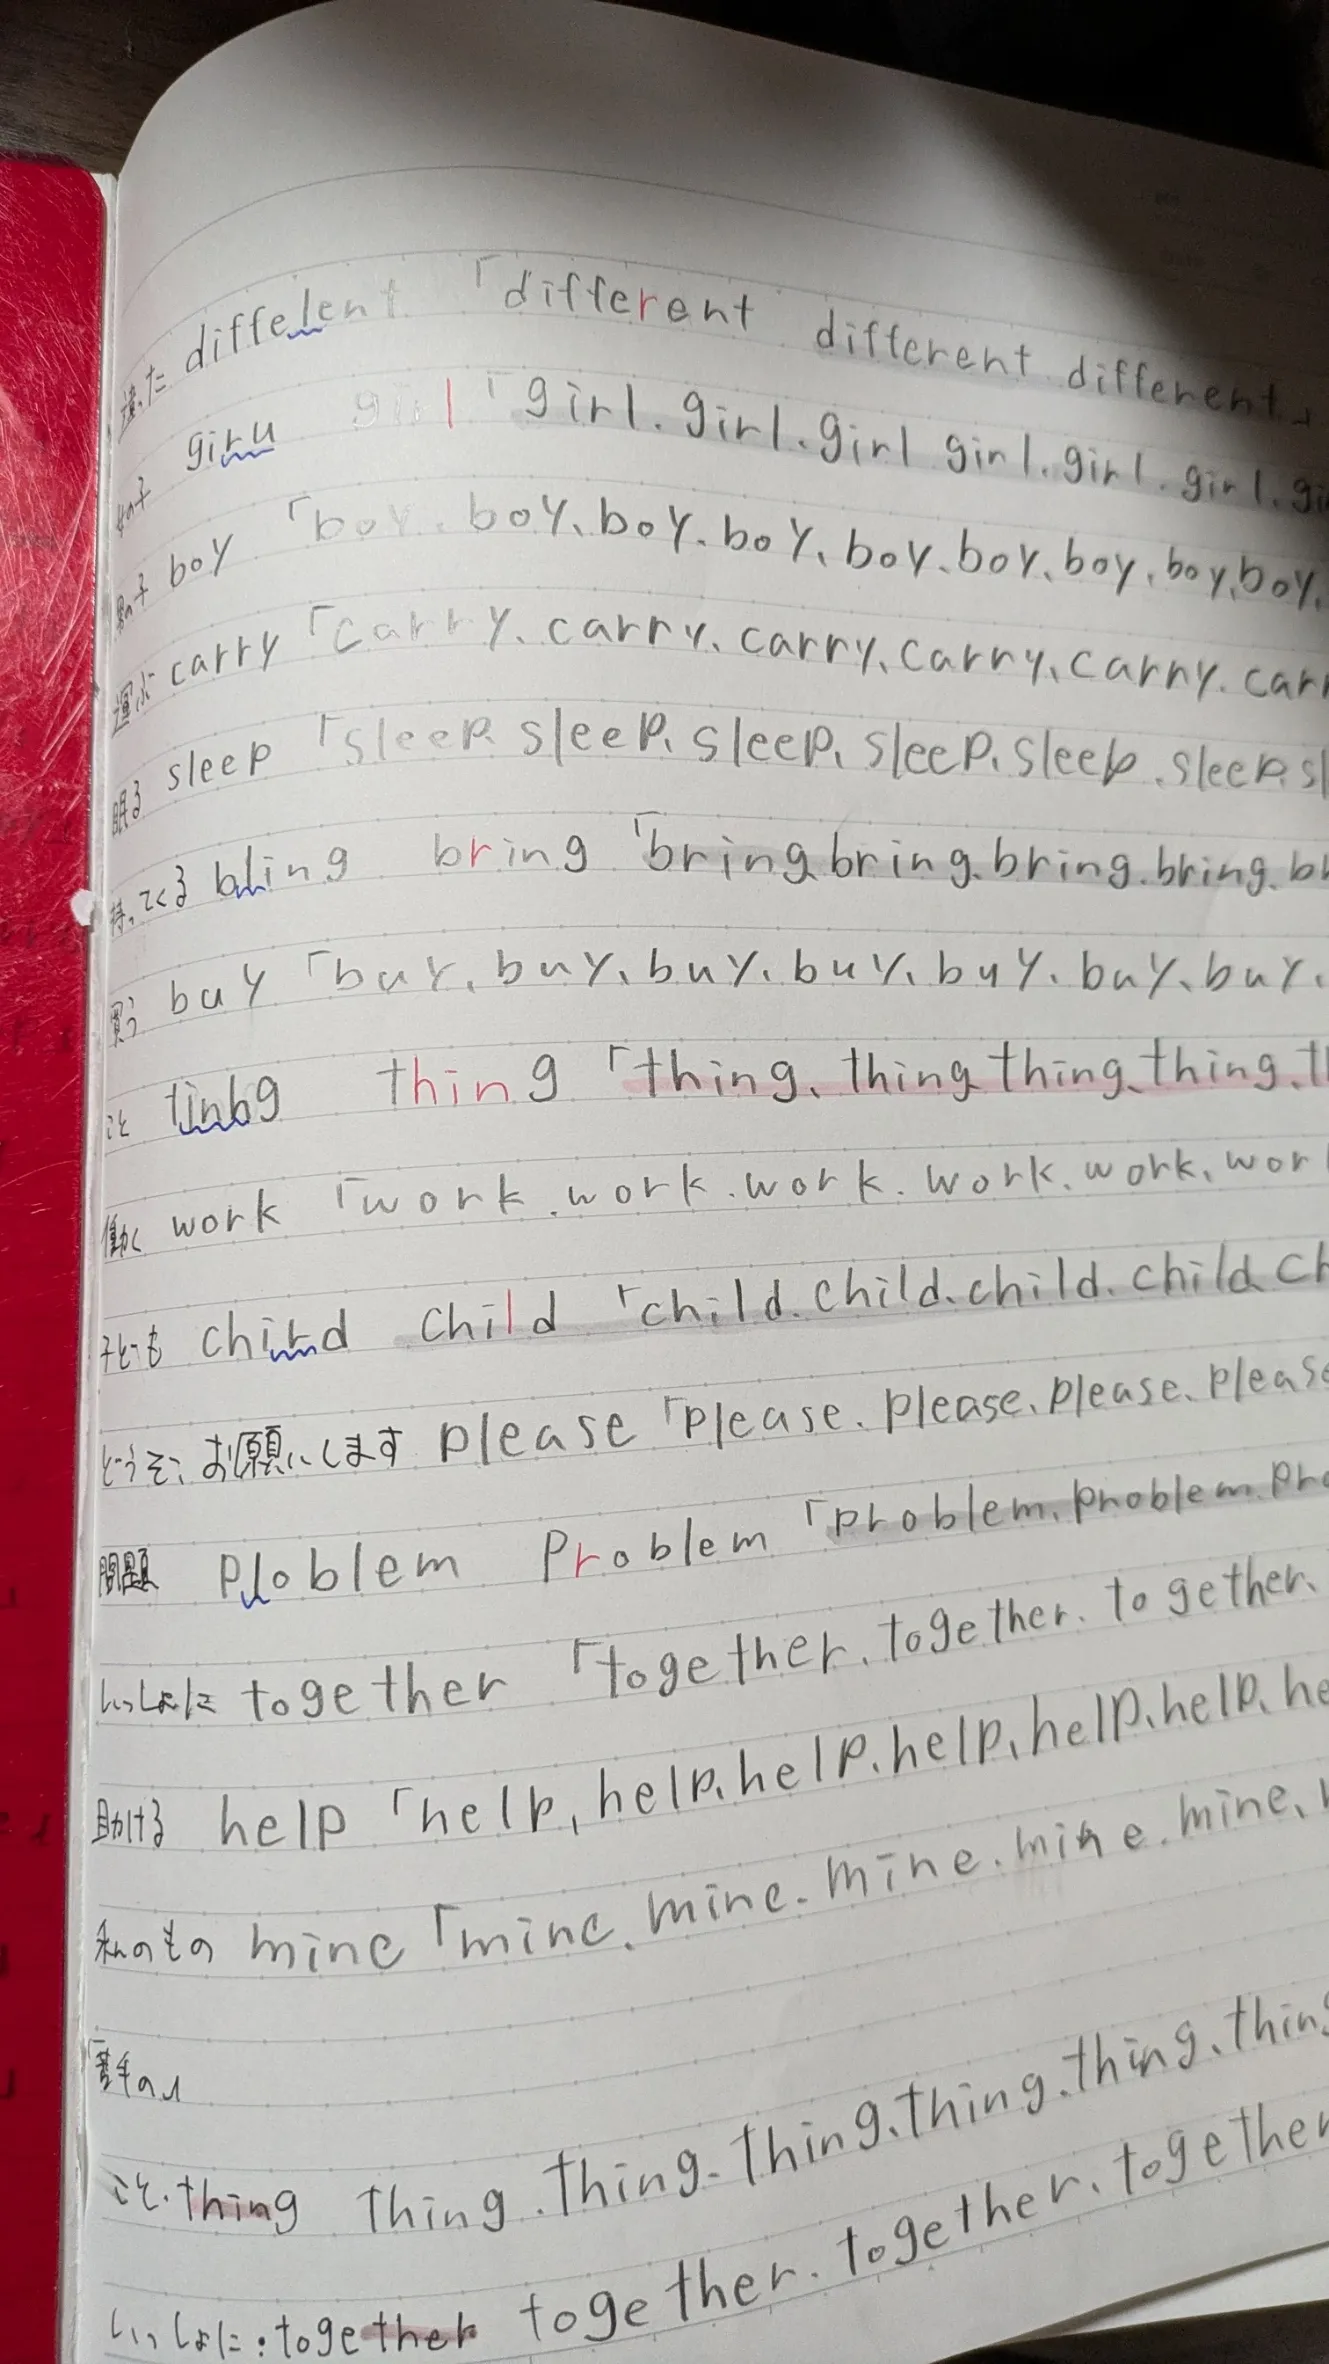 違った differlent 「different different different」
女の子 giru girl 「girl. girl. girl girl. girl. girl. gi
男の子 boy 「boy. boy、boy. boy、boy. boy、boy、boy、boy.
運ぶ carry 「carry、carry、carry、carry、carry. carr
眠る sleep 「sleep. sleep、sleep、sleep、sleep. sleep. sl
持ってくる bling bring 「bring. bring. bring. bring. br
買う buy 「buy. buy、buy、buy、buy. buy、buy.
こと tinbg thing 「thing、thing thing、thing、t
働く work 「work. work. work. work. work、wor
子ども chird child 「child. child、child. child. ch
どうぞ、お願いします please 「please、please、please、please
問題 ploblem problem 「problem. problem. pro
いっしょに together 「together. together. together、
助ける help 「help, help、help、help、help、help、he
私のもの mine 「mine. mine. mine. mine. mine、
「苦手の」
こと・thing thing. thing. thing、thing. thing、thing
いっしょに:together together. together、together